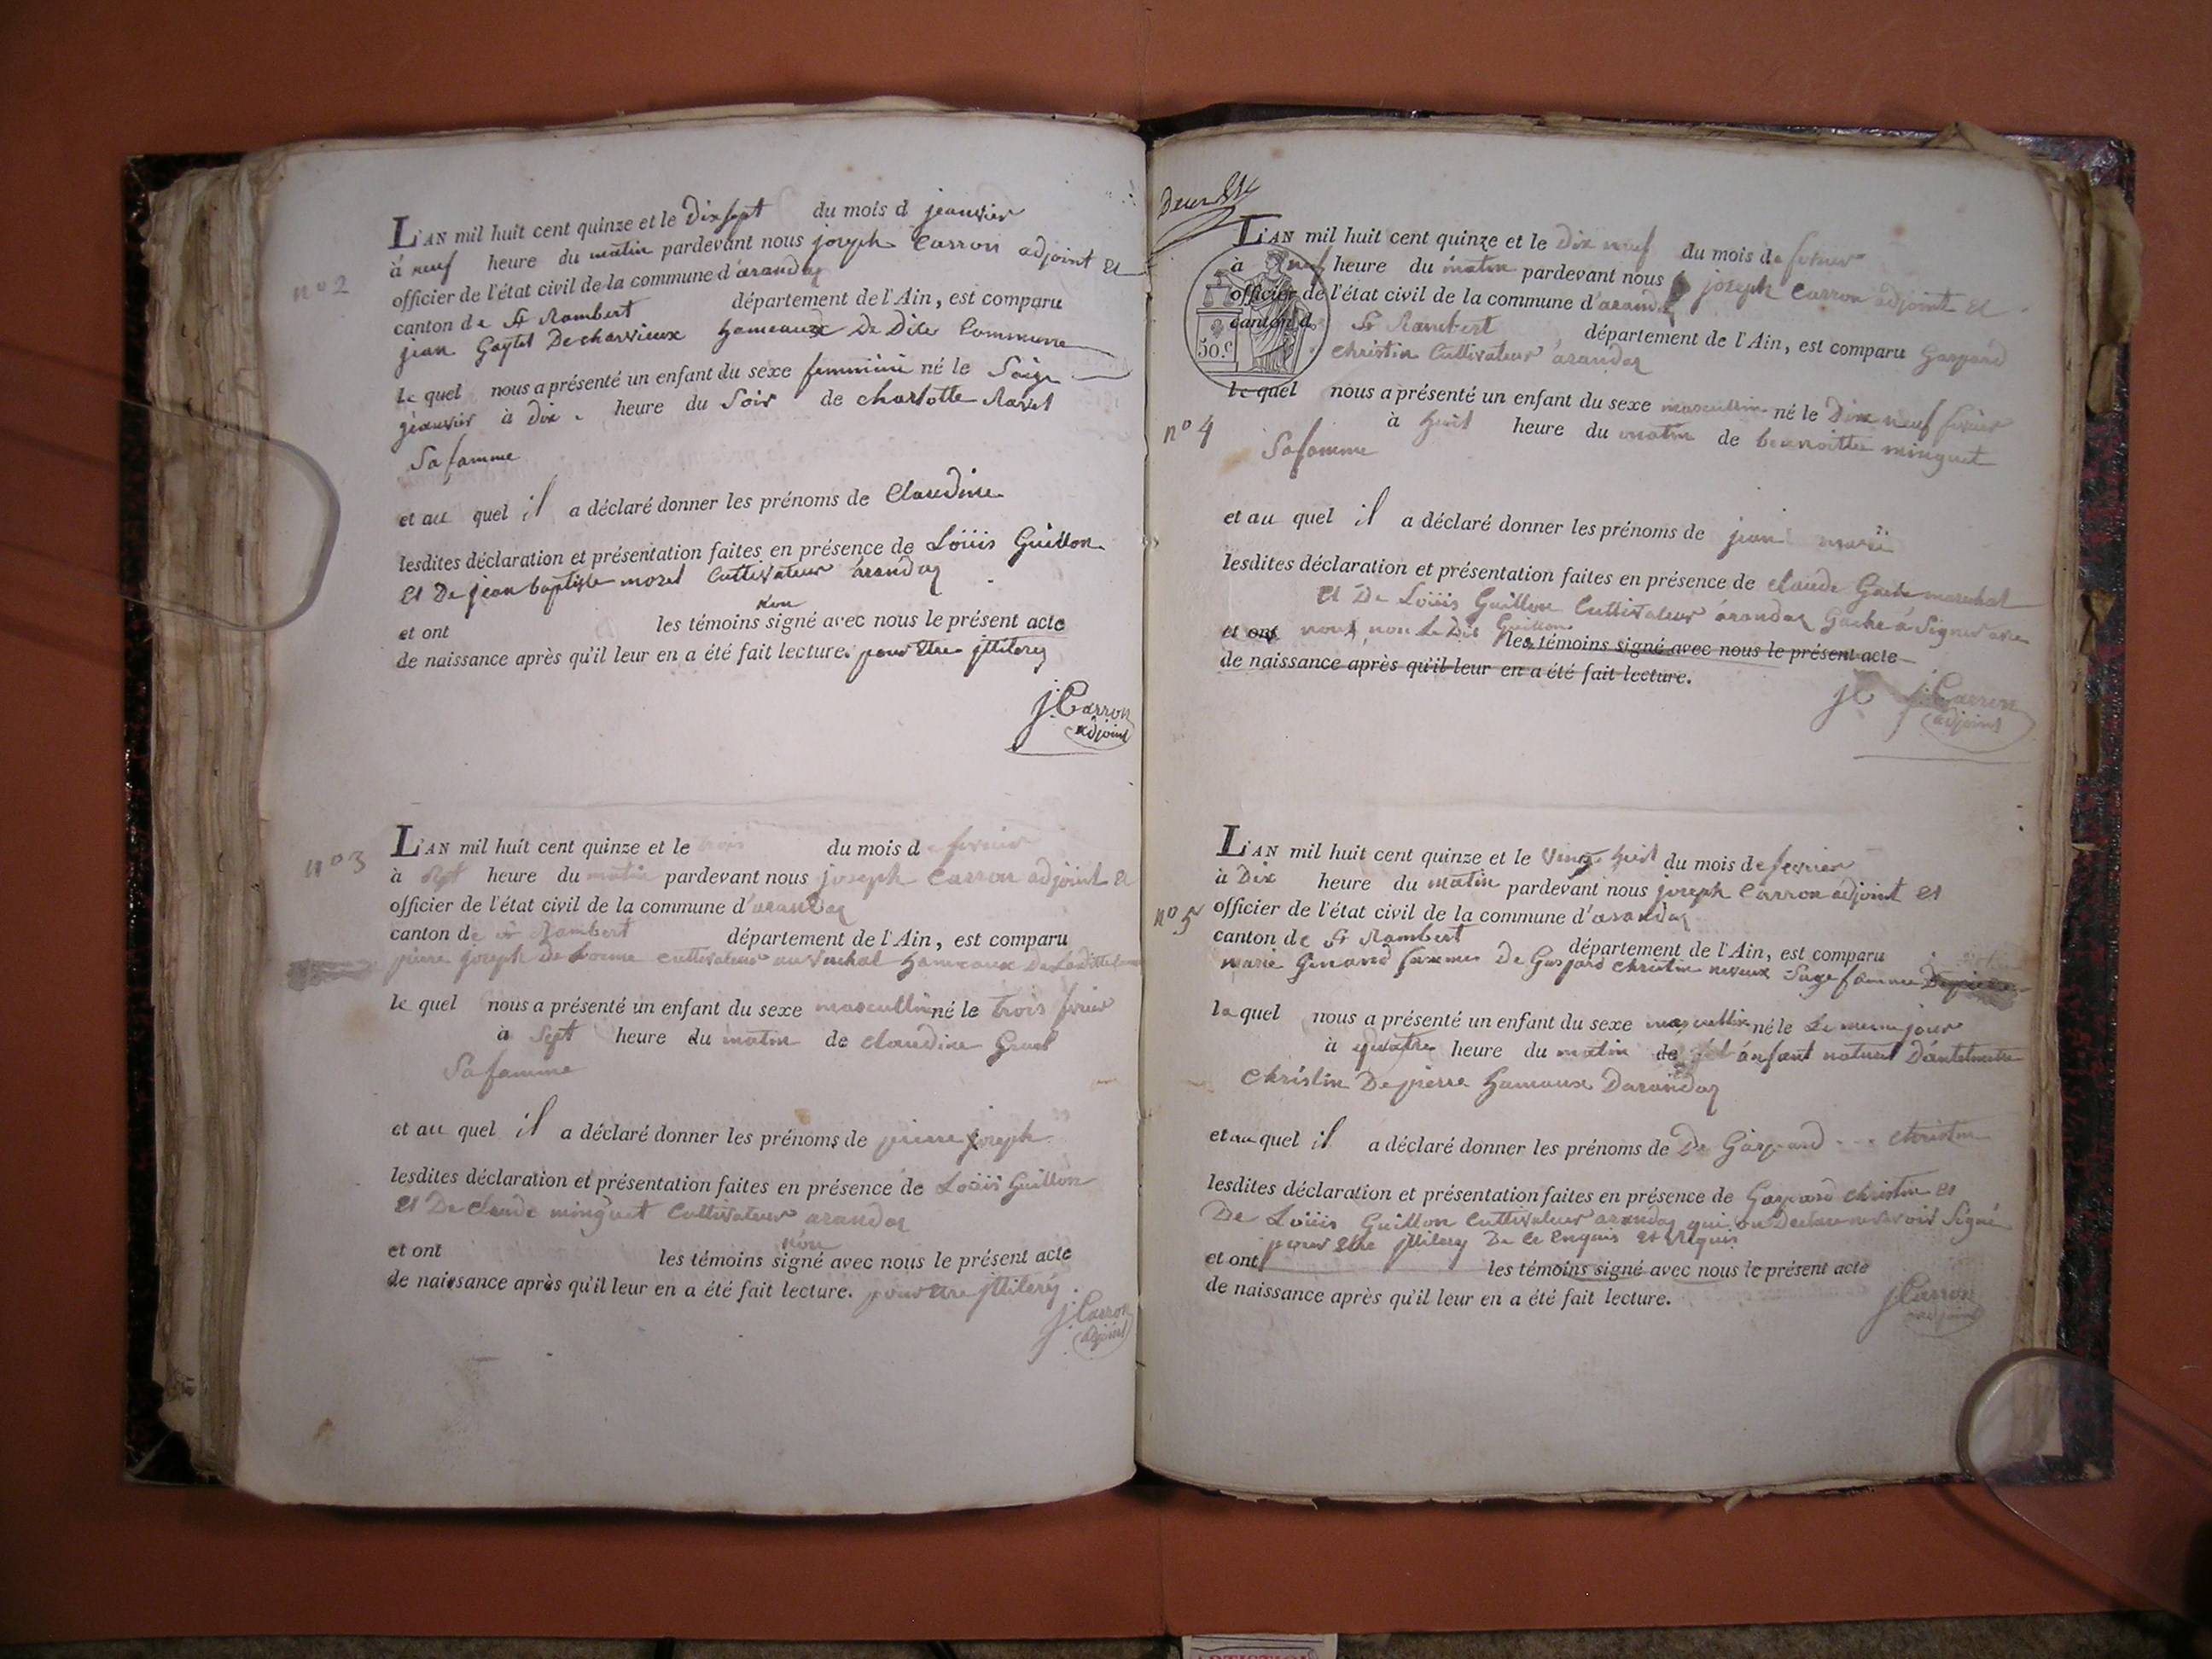 n° 2
L'AN mil huit cent quinze et le Dix sept du mois d jeanvier
à neuf heure du matin pardevant nous joseph Carron adjoint et
officier de l'état civil de la commune d'arandaz
canton de St Rambert département de l'Ain, est comparu
jean Decharvieux hameaux De Dite Commune
le quel nous a présenté un enfant du sexe femminin né le Saize
jeanvier à Dix heure du Soir de charlotte Ravet
Sa famme
et au quel il a déclaré donner les prénoms de Claudine
lesdites déclaration et présentation faites en présence de Loüis Guillon
Et De jean baptiste morel Cultivateur arandaz
et ont les témoins non signé avec nous le présent acte
de naissance après qu'il leur en a été fait lecture. pour Etre jllilerey
j. Carron
adjoint
n° 3
L'AN mil huit cent quinze et le trois du mois de fevrier
à sept heure du matin pardevant nous joseph Carron adjoint et
officier de l'état civil de la commune d'arandaz
canton de St Rambert département de l'Ain, est comparu
pierre joseph de Lorme cultivateur au hameaux De La Ditte
le quel nous a présenté un enfant du sexe mascullin né le trois fevrier
à Sept heure du matin de claudine
Sa famme
et au quel il a déclaré donner les prénoms de pierre joseph
lesdites déclaration et présentation faites en présence de Loüis Guillon
Et De Claude minguet Cultivateur arandaz
et ont les témoins non signé avec nous le présent acte
de naissance après qu'il leur en a été fait lecture. pour Etre jllilerey
j. Carron
adjoint
L'AN mil huit cent quinze et le Dix neuf du mois de fevrier
à neuf heure du matin pardevant nous joseph Carron adjoint et
officier de l'état civil de la commune d'arandaz
canton d St Rambert département de l'Ain, est comparu Gaspard
christin Cultivateur arandaz
50.c
le quel nous a présenté un enfant du sexe mascullin né le Dix neuf fevrier
n° 4
à huit heure du matin de bennoitte minguet
Sa famme
et au quel il a déclaré donner les prénoms de jean marie
lesdites déclaration et présentation faites en présence de claude Gache marechal
Et De Loüis Guillon Cultivateur arandaz Gache a Signer avec
et ont nous non Le Dit Guillon les témoins signé avec nous le présent acte
de naissance après qu'il leur en a été fait lecture.
jC j. Carron
adjoint
L'AN mil huit cent quinze et le Vingt huit du mois de fevrier
à Dix heure du matin pardevant nous joseph Carron adjoint et
n° 5
officier de l'état civil de la commune d'arandaz
canton de St Rambert département de l'Ain, est comparu
marie famme De Gaspard christin Sage famme
la quel nous a présenté un enfant du sexe mascullin né le Le meme jour
à quatre heure du matin de anfant naturel
Christin Depierre hameaux Darandaz
et au quel il a déclaré donner les prénoms de De Gaspard Christin
lesdites déclaration et présentation faites en présence de Gaspard christin et
De Loüis Guillon Cultivateur arandaz qui on Declare Signé
pour Etre jllilerey De Ce Enquis et Requis
et ont les témoins signé avec nous le présent acte
de naissance après qu'il leur en a été fait lecture.
j. Carron
adjoint